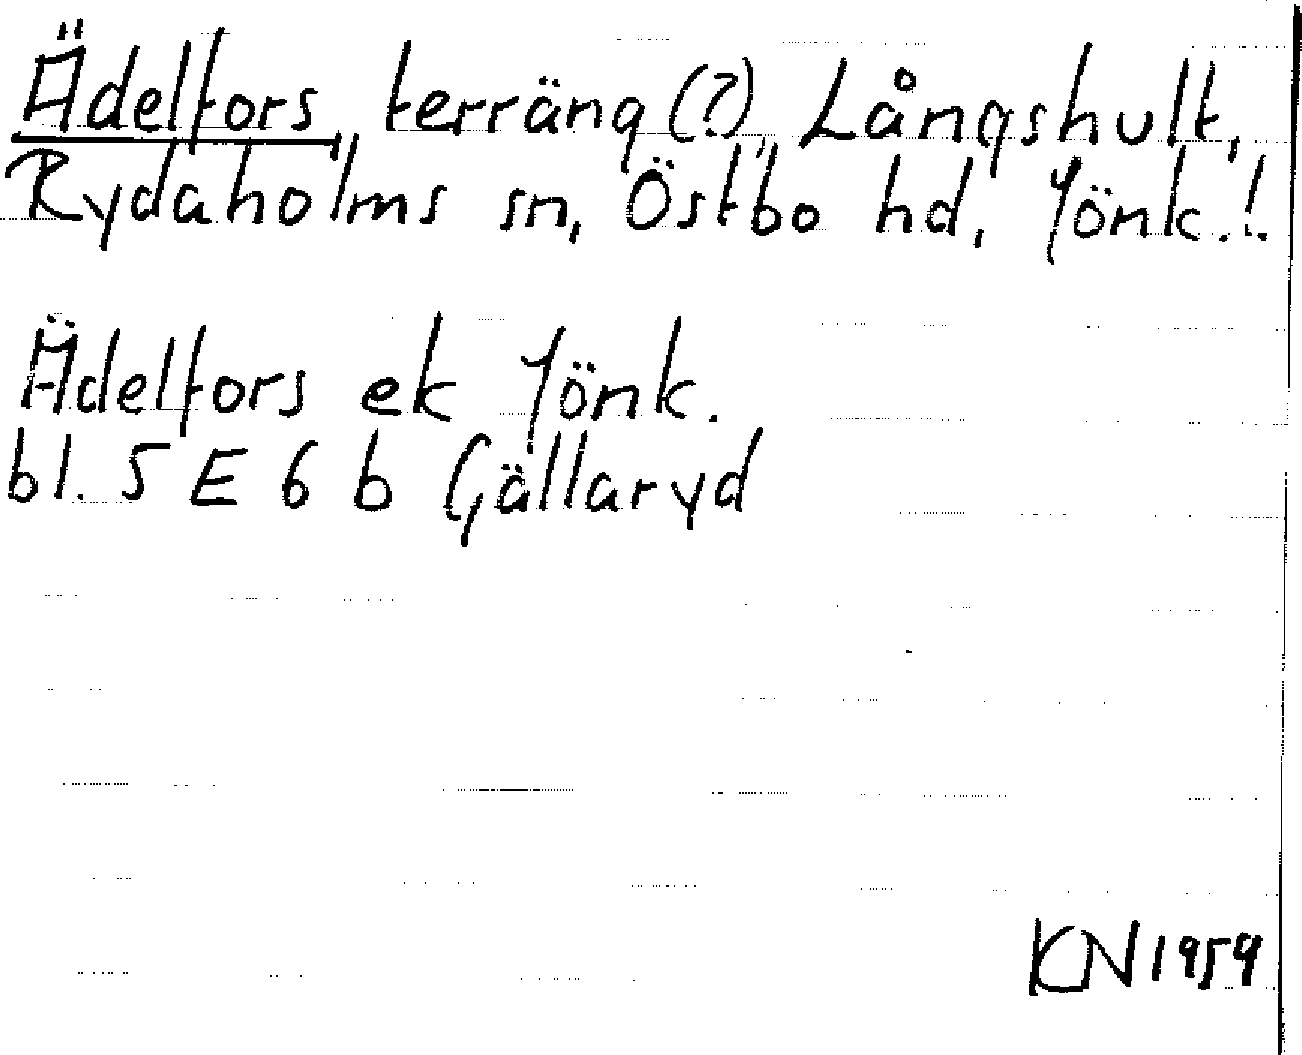 Ädelfors, terräng (?), Långshult,
Rydaholms sn, Östbo hd, Jönk.!
Ädelfors ek Jönk.
bl. 5 E 6 b Gällaryd
KN 1959